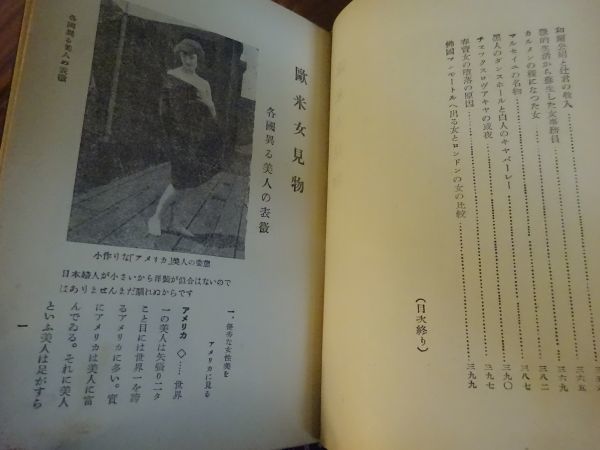 公娼と社員の收入
蘇生した女事務員
カルメンの樣になつた女
マルセイユの名物
黑人のダンスホールと白人のキヤバーレー
チエツクスロヴアキヤの或夜
春賣女の墮落の原因
佛國マンモートルへ出る女とロンドンの女の比較
三六五
三六九
三八二
三八七
三九〇
三九七
三九九
(目次終り)
歐米女見物
各國異る美人の表徵
各國異る美人の表徵
小作りな「アメリカ」美人の姿態
日本婦人が小さいから洋裝が似合はないので
はありませんまだ馴れぬからです
一、優秀な女性美を
アメリカに見る
アメリカ ◇……世界
一の美人は矢張り二タ
こと目には世界一を誇
るアメリカに多い。實
にアメリカは美人に富
んでゐる。それに美人
といふ美人は足がすら
一